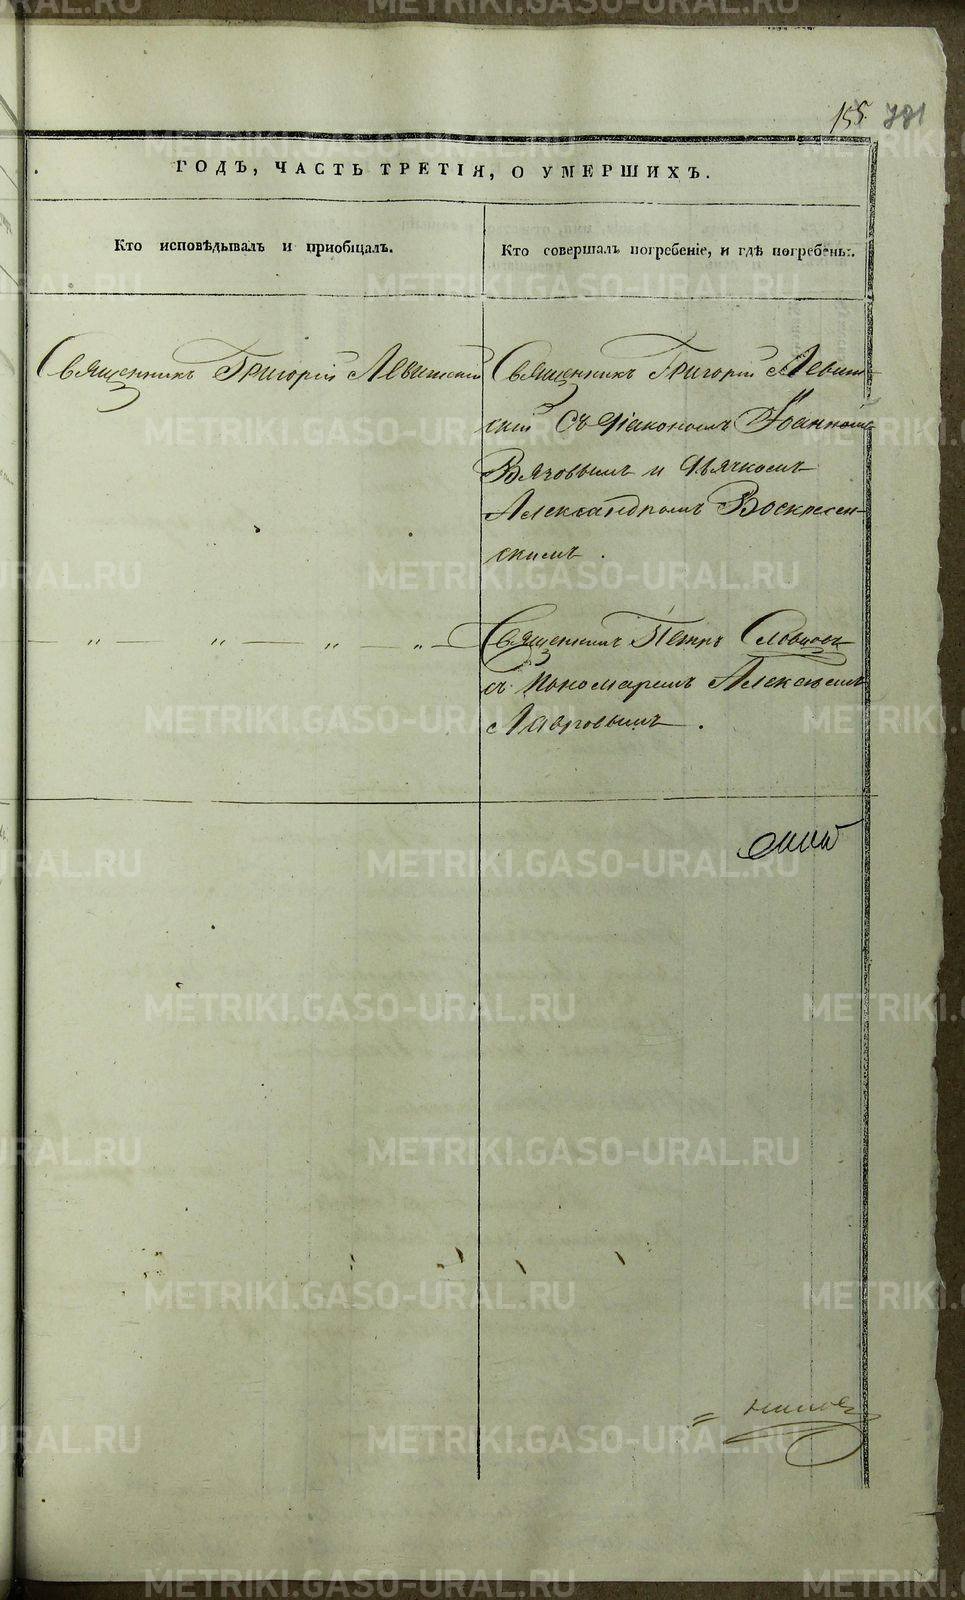 155 781
ГОДЪ, ЧАСТЬ ТРЕТІЯ, О УМЕРШИХЪ.
Кто исповѣдывалъ и пріобщалъ.
Кто совершалъ погребеніе, и гдѣ погребены.
Священникъ Григорій Левитскій
Священникъ Григорій Левит-
скій съ Діакономъ Іоанномъ
и Дьячкомъ
Александромъ Воскресен-
скимъ.
— „ — „ — „ — „ —
Священникъ Петръ Словцовъ
съ Пономаремъ Алексѣемъ
Лавровымъ.
METRIKI.GASO-URAL.RU